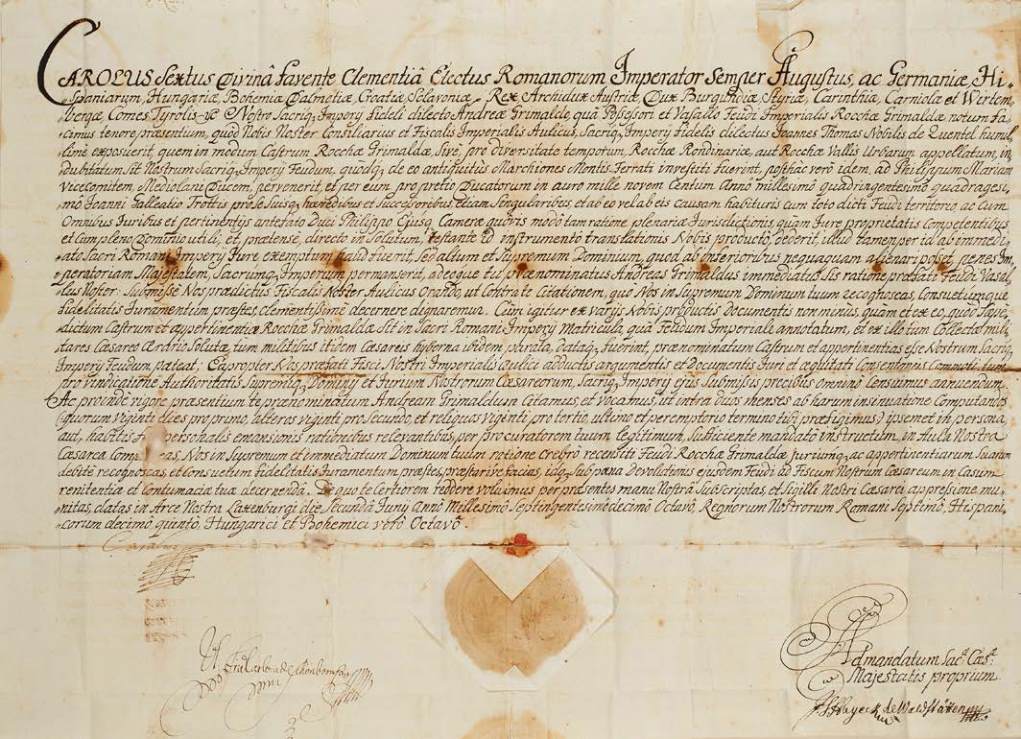 CAROLUS Sextus Divinâ favente Clementiâ Electus Romanorum Imperator Semper Augustus, ac Germaniæ, Hi-
spaniarum, Hungariæ, Bohemiæ Dalmatiæ, Croatiæ, Sclavoniæ Rex, Archidux Austriæ, Dux Burgundiæ, Styriæ, Carinthiæ, Carniolæ et Wirtem-
bergæ Comes Tyrolis Nostro Sacriq. Impery fideli dilecto Andreæ Grimaldo, quâ Possessori et Vasallo Feudi Imperialis Rocchæ Grimaldæ notum fa-
cimus tenore præsentium, quod Nobis Noster Consiliarius et Fiscalis Imperialis Aulicus, Sacriq. Impery fidelis dilectus Joannes Thomas Nobilis de Quentel humil-
lime exposuerit, quem in modum Castrum Rocchæ Grimaldæ, Sive, pro diversitate temporum, Rocchæ Rondinariæ, aut Rocchæ Vallis Urbarum appellatum, in
dubitatum sit Nostrum Sacriq. Impery Feudum, quodq. de eo antiquitus Marchiones Montis Ferrati investiti fuerint, posthac verò idem, ad Philippum Mariam
Vicecomitem, Mediolani Ducem, pervenerit, et per eum pro pretio Ducatorum in auro mille novem Centum Anno millesimo quadringentesimo quadragesi-
mo Joanni Galleatio Trotti pro se Suisq. hæredibus et successoribus etiam Singularibus, et ab eo vel ab eis causam habituris cum toto dicti Feudi territorio, ac Cum
Omnibus Juribus et pertinentijs antefato Duci Philippo Ejusq. Cameræ quovis modò tam ratione plenariæ Jurisdictionis quàm Jure proprietatis Competentibus
et Cum pleno Dominio utili, et, prætense, directo in Solutum, testante id instrumento translationis Nobis producto, dederit, illud tamen per id ab immedi-
ato Sacri Romani Impery Jure exemptum haud fuerit, Sed altum et Supremum Dominium, quod ab inferioribus nequaquam alienari posset, penes Im-
peratoriam Majestatem, Sacrumq. Imperium permanserit, adeoque tu prænominatus Andreas Grimaldus immediatus Sis ratione præfati Feudi Vasal-
lus Noster: Submisse Nos prædictus Fiscalis Noster Aulicus Orando, ut Contra te Citationem, quò Nos in Supremum Dominum tuum recognoscas, Consuetumque
fidelitatis Juramentum præstes, clementissime decernere dignaremur. Cum igitur ex varijs Nobis productis documentis non minus quam et ex eo, quod sæpe
dictum Castrum et appertinentiæ Rocchæ Grimaldæ Sit in Sacri Romani Impery Matricula, quâ Feudum Imperiale annotatum, et ex illo tum Collectæ mili-
tares Cæsareo Ærario Solutæ, tum militibus itidem Cæsareis hyberna ibidem data fuerint, prænominatum Castrum et appertinentias esse Nostrum Sacriq.
Impery Feudum, pateat; Ea propter Nos præfati Fisci Nostri Imperialis Aulico adductis argumentis et Documentis Juri et æquitati Consentaneis
pro vindicatione Authoritatis Supremiq. Dominy et Jurium Nostrorum Cæsareorum, Sacriq. Impery ejus Submissis precibus omnino Censuimus annuendum.
Ac proinde vigore præsentium te prænominatum Andream Grimaldum Citamus et Vocamus, ut intra duos menses ab harum insinuatione Computandos
(quorum Viginti dies pro primo, alteros viginti pro Secundo, et reliquos Viginti pro tertio, ultimo et peremptorio termino tibi præfigimus) ipsemet in persona,
aut, habitis personalis emansionis rationibus relevantibus, per procuratorem tuum legitimum, Sufficiente mandato instructum, in Aula Nostra
Cæsarea Nos in Supremum et immediatum Dominum tuum ratione crebrò recensiti Feudi Rocchæ Grimaldæ Juriumq. ac appertinentiarum Suarum
debitè recognoscas, et Consuetum fidelitatis Juramentum præstes, præstarive facias, idq. Sub pæna Devolutionis ejusdem Feudi ad Fiscum Nostrum Cæsareum in Casum
renitentiæ et Contumaciæ tuæ decernendâ. De quo te Certiorem reddere voluimus per præsentes manu Nostrâ Subscriptas, et Sigilli Nostri Cæsarei appressione mu-
nitas, datas in Arce Nostra Laxenburgi die Secundâ Juny Anno Millesimo Septingentesimo decimo Octavo, Regnorum Nostrorum Romani Septimo, Hispani-
corum decimo quinto, Hungarici et Bohemici verò Octavo.
Carolus
Ad mandatum Sac.æ Cæs.æ
Majestatis proprium